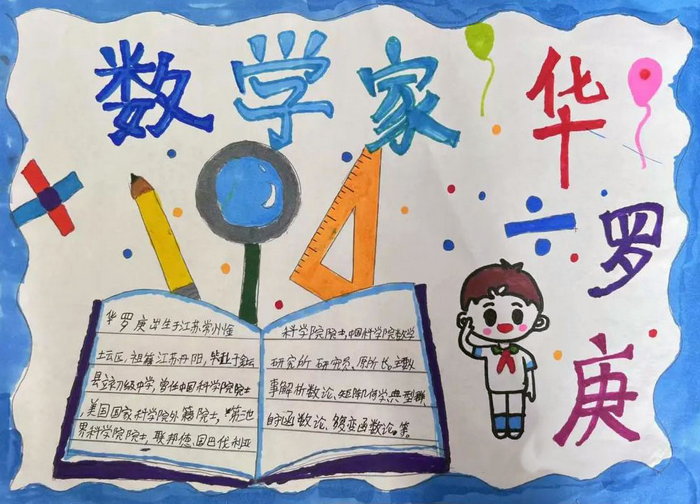 数学家
华罗庚
华罗庚出生于江苏常州金
坛区，祖籍江苏丹阳，毕业于金坛
县立初级中学，曾任中国科学院院士
，美国国家科学院外籍院士，第三世
界科学院院士，联邦德国巴伐利亚
科学院院士，中国科学院数学
研究所研究员、原所长。主要从
事解析数论、矩阵几何学、典型群、
自守函数论、多复变函数论。等